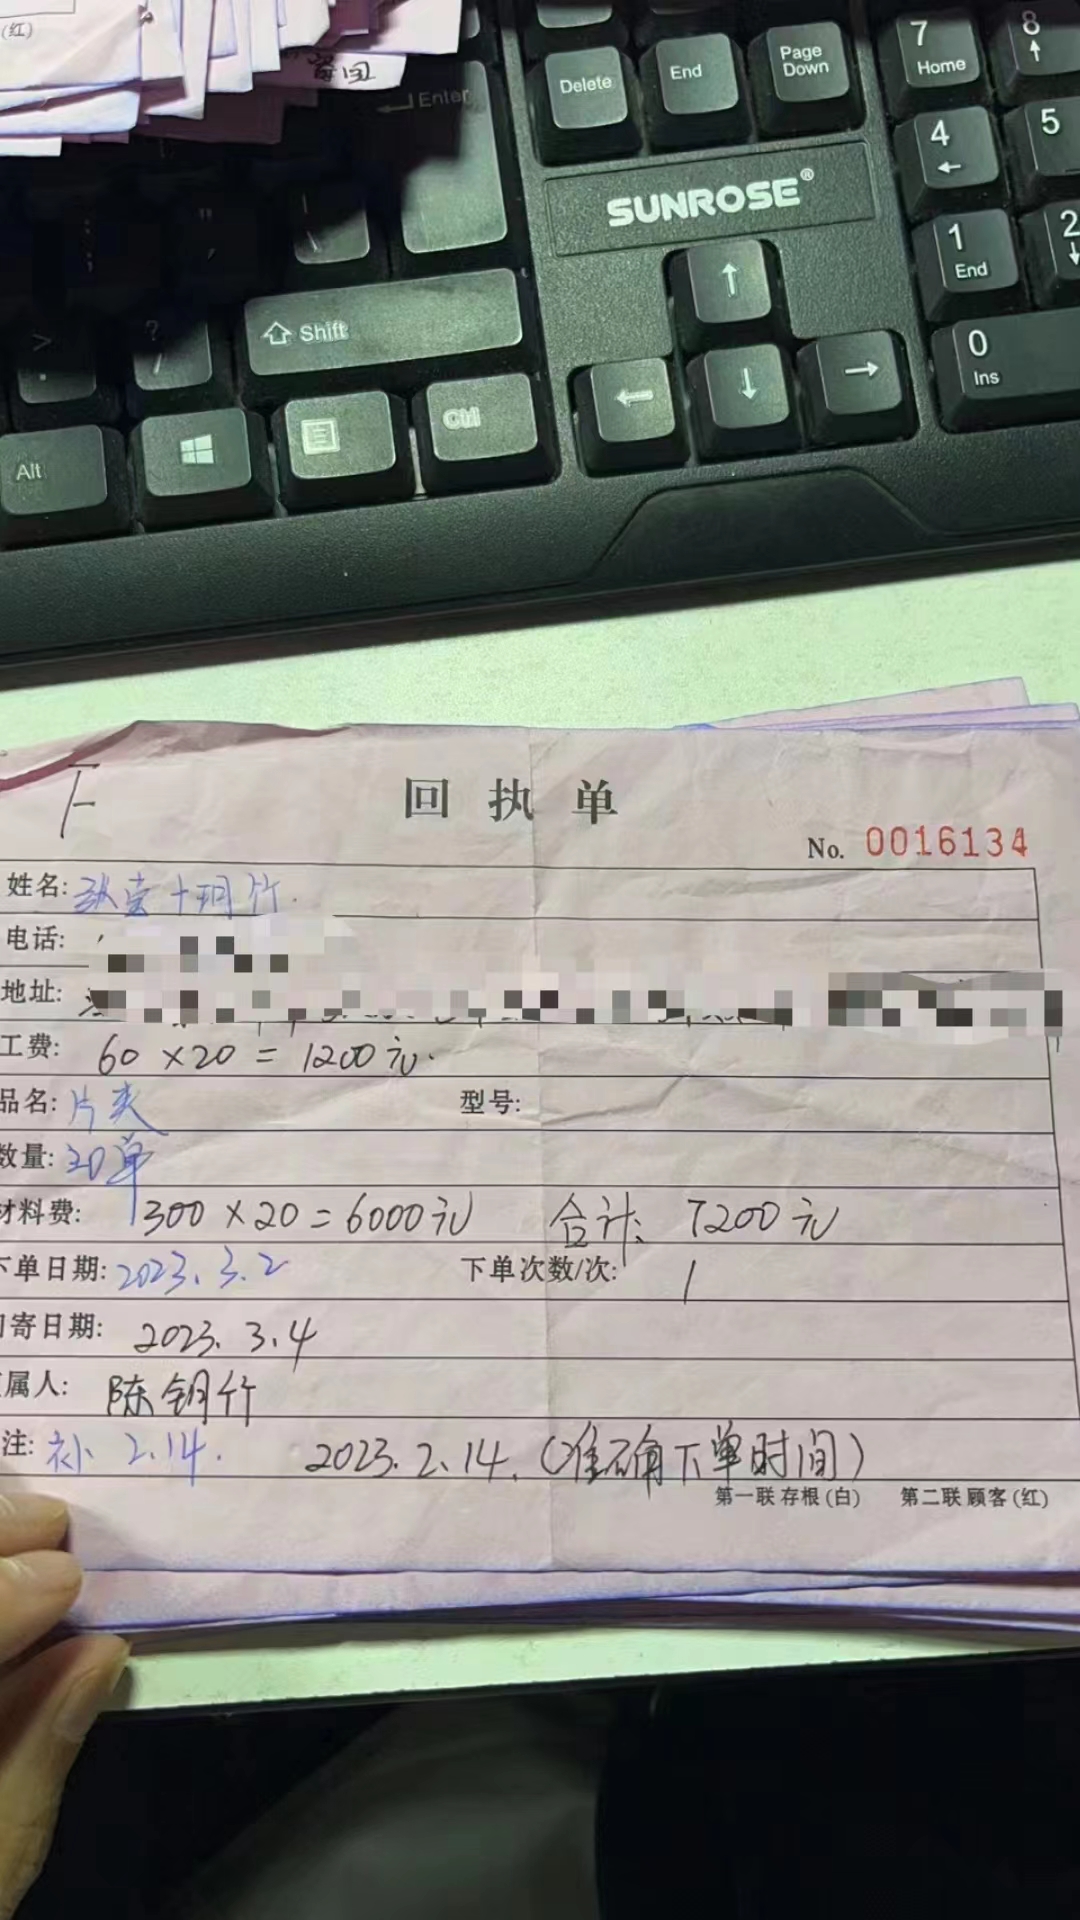 (红)
Enter
Delete
End
Page Down
7 Home
8
4
5
SUNROSE®
1 End
2
Shift
0 Ins
Alt
Ctrl
回执单
No. 0016134
姓名:
电话:
地址:
工费: 60×20=1200元.
品名: 片夹 型号:
数量: 20单
材料费: 300×20=6000元 合计: 7200元
下单日期: 2023.3.2 下单次数/次: 1
寄日期: 2023.3.4
属人: 陈钥竹
注: 补 2.14. 2023.2.14.(准确下单时间)
第一联 存根(白) 第二联 顾客(红)